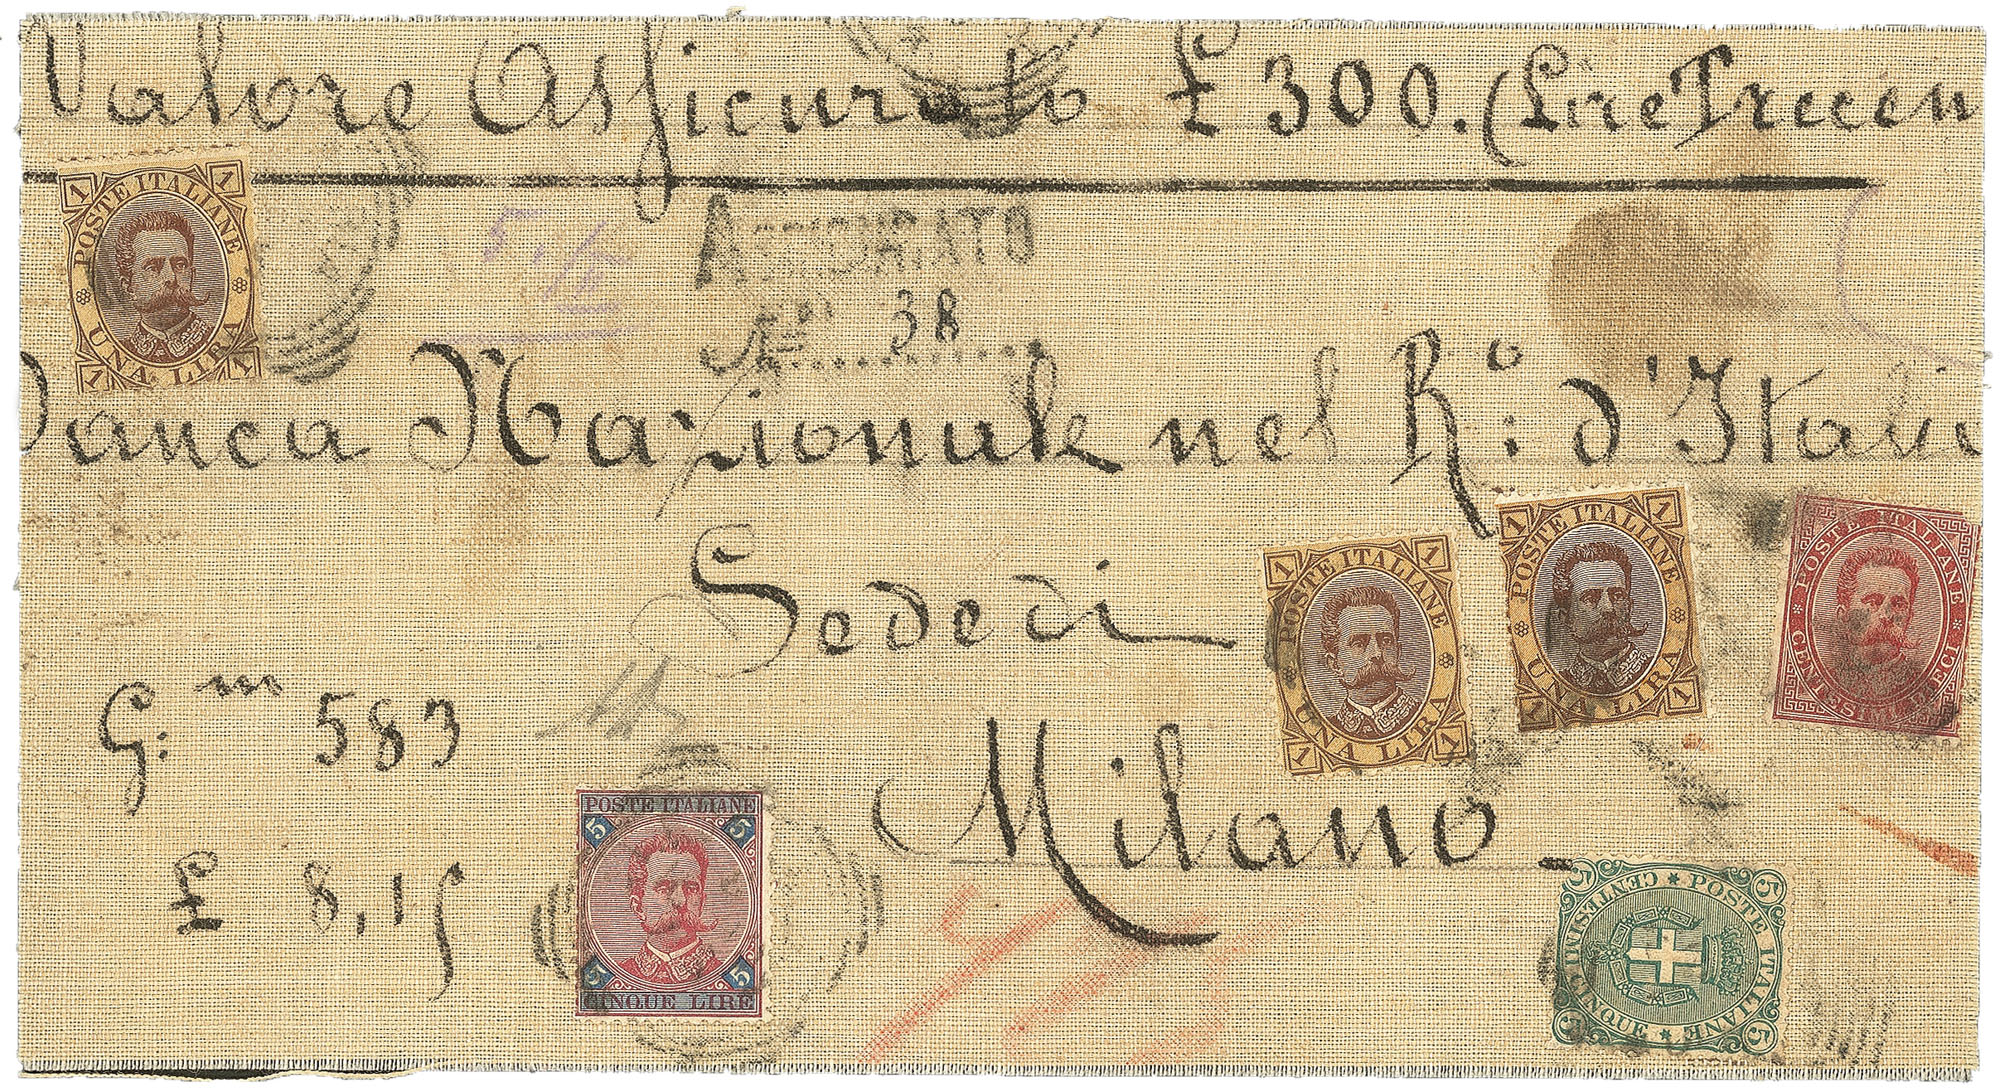 Valore Assicurato £ 300. (Lire Trecen
1 POSTE ITALIANE 1
1 UNA LIRA 1
ASSICURATO
N° 38
Banca Nazionale nel R.° d'Itali
Sede di
1 POSTE ITALIANE 1
1 UNA LIRA 1
1 POSTE ITALIANE 1
1 UNA LIRA 1
POSTE ITALIANE
CENTESIMI DIECI
G:m 583
Milano
£ 8,15
POSTE ITALIANE
5 5
5 5
CINQUE LIRE
5 POSTE ITALIANE 5
5 CINQUE CENTESIMI 5